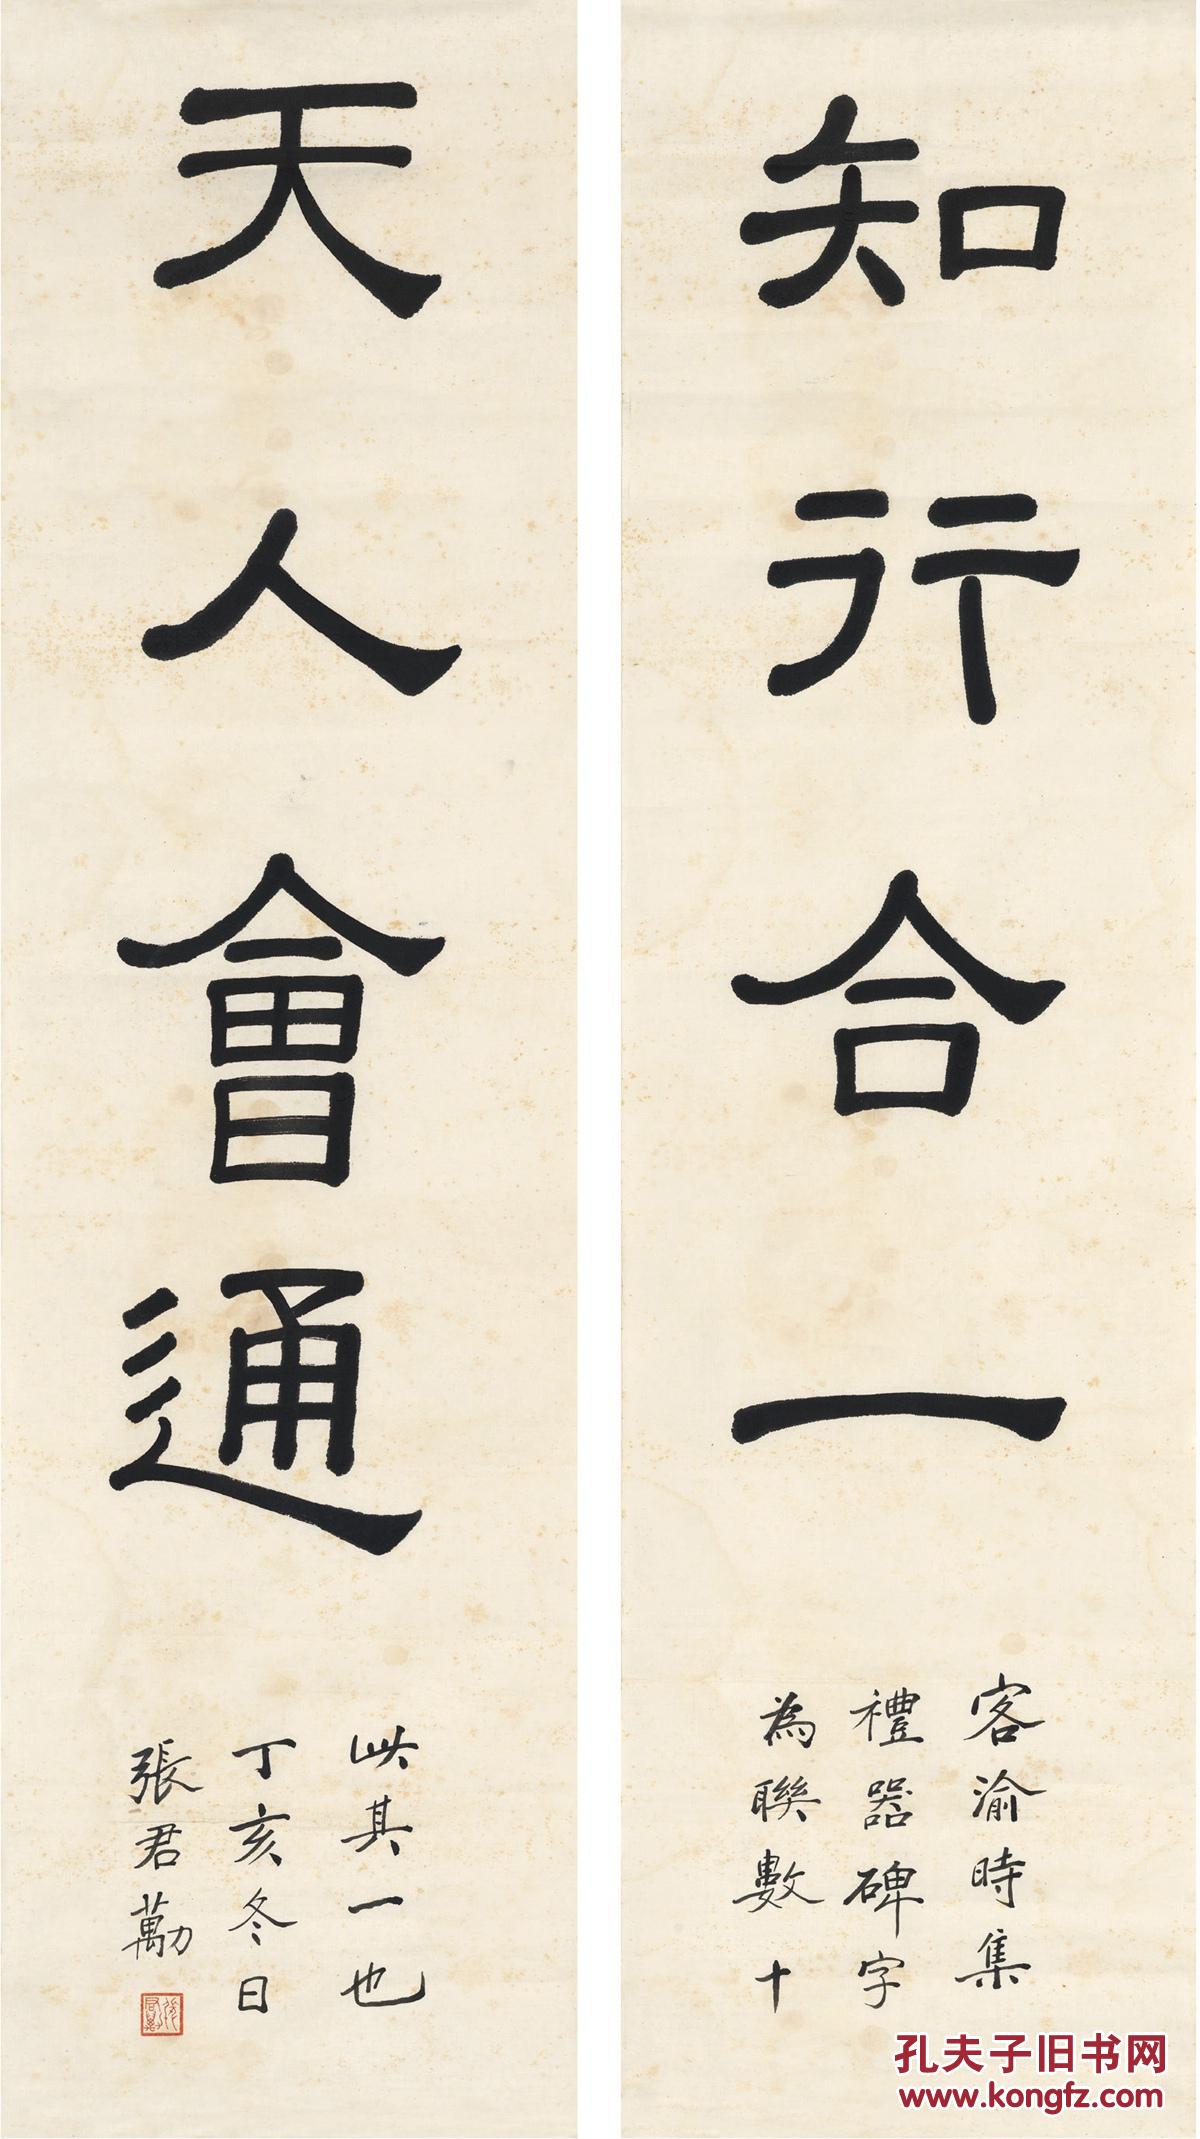 知行合一
客渝時集
禮器碑字
為聯數十
天人會通
此其一也
丁亥冬日
張君勱
孔夫子旧书网
www.kongfz.com